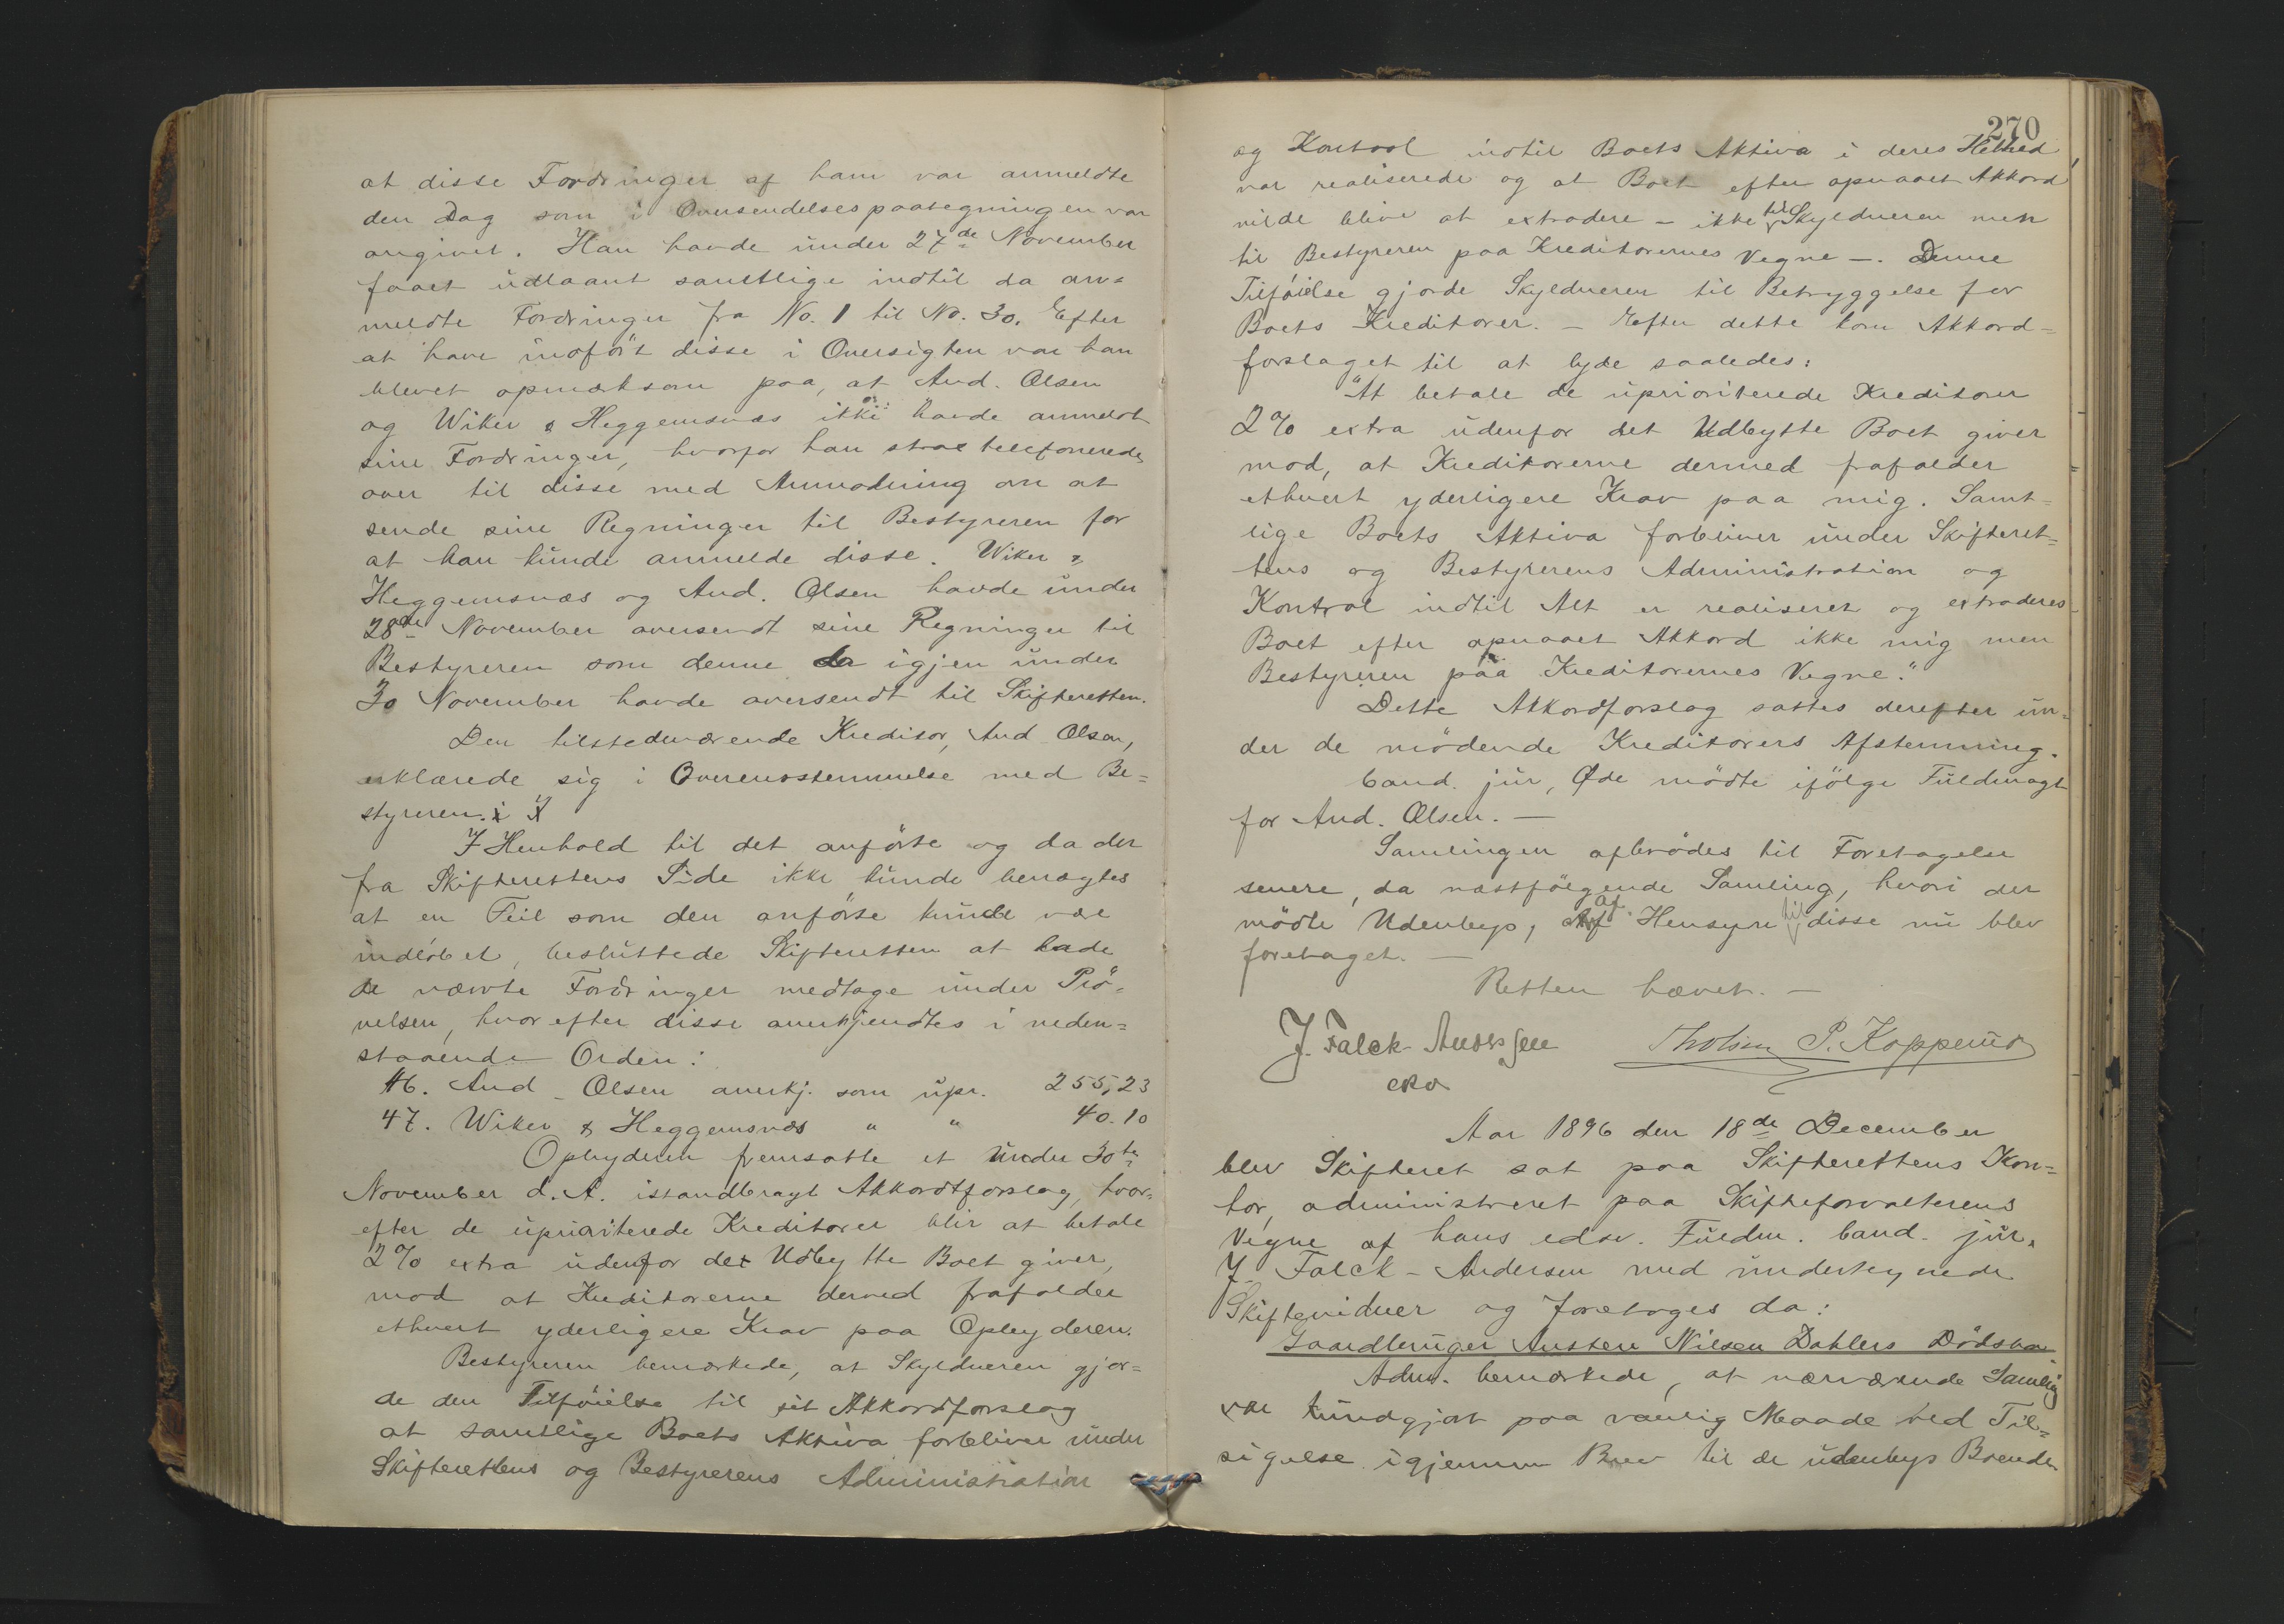 at disse Fordringer af ham var anmeldte
den Dag som i Oversendelsespaategningen var
angivet. Han havde under 27de November
faaet udlaant samtlige indtil da an=
meldte Fordringer fra No. 1 til No. 30. Efter
at have indført disse i Oversigten var han
blevet opmærksom paa, at And. Olsen
og Wiker & Heggemsnæs ikke havde anmeldt
sine Fordringer, hvorfor han strax telefonerede
over til disse med Anmodning om at
sende sine Regninger til Bestyreren for
at han kunde anmelde disse. Wiker &
Heggemsnæs og And. Olsen havde under
28de November oversendt sine Regninger til
Bestyreren som denne da igjen under
30 November havde oversendt til Skifteretten.
Den tilstedeværende Kreditor, And Olsen,
erklærede sig i Overensstemmelse med Be=
styreren.
I Henhold til det anførte og da der
fra Skifterettens Side ikke kunde benægtes
at en Feil som den anførte kunde være
indløbet, besluttede Skifteretten at lade
de nævnte Fordringer medtage under Prø=
velsen, hvorefter disse anerkjendtes i neden=
staaende Orden:
46. And Olsen anerkj. som upr. 255,23
47. Wiker & Heggemsnæs " " 40.10
Opbyderen fremsatte et under 30te
November d. A. istandbragt Akkordforslag, hvor=
efter de uprioriterede Kreditorer blir at betale
2% extra udenfor det Udbytte Boet giver,
mod at Kreditorerne derved frafalder
ethvert yderligere Krav paa Opbyderen.
Bestyreren bemærkede, at Skyldneren gjor=
de den Tilføielse til sit Akkordforslag
at samtlige Boets Aktiva forbliver under
Skifterettens og Bestyrerens Administration
270
og Kontrol indtil Boets Aktiva i deres Helhed
var realiserede og at Boet efter opnaaet Akkord
vilde blive at extradere – ikke til Skyldneren men
til Bestyreren paa Kreditorernes Vegne –. Denne
Tilføielse gjorde Skyldneren til Betryggelse for
Boets Kreditorer. – Efter dette kom Akkord=
forslaget til at lyde saaledes:
"At betale de uprioriterede Kreditorer
2% extra udenfor det Udbytte Boet giver
mod, at Kreditorerne dermed frafalder
ethvert yderligere Krav paa mig. Samt=
lige Boets Aktiva forbliver under Skifteret=
tens og Bestyrerens Administration og
Kontrol indtil Alt er realiseret og extraderes
Boet efter opnaaet Akkord ikke mig men
Bestyreren paa Kreditorernes Vegne."
Dette Akkordforslag sattes derefter un=
der de mødende Kreditorers Afstemning.
Cand. jur, Øde mødte ifølge Fuldmagt
for And. Olsen. –
Samlingen afbrødes til Foretagelse
senere, da næstfølgende Samling, hvori der
mødte Udenbys, af Hensyn til disse nu blev
foretaget. –
Retten hævet. –
J. Falck-Andersen
P. Koppernæs
Aar 1896 den 18de December
blev Skifteret sat paa Skifterettens Kon=
tor, administreret paa Skifteforvalterens
Vegne af hans edsv. Fuldm. Cand. jur.
J. Falck-Andersen med undertegnede
Skiftevidner og foretoges da:
Gaardbruger Austen Nilsen Dahlers Dødsbo
Adm. bemærkede, at nærværende Samling
var kundgjort paa vanlig Maade ved Til=
sigelse igjennem Brev til de udenbys Boende